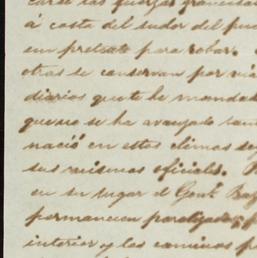 á costa del sudor del pue
un pretesto para robar.
otras se conservan por
diarios que te he mandado
que no se ha avanzado tan
nació en estos climas se
sus mismos oficiales.
en su lugar el Genl. Ba
permanecen paralizados,
interior y los caminos p